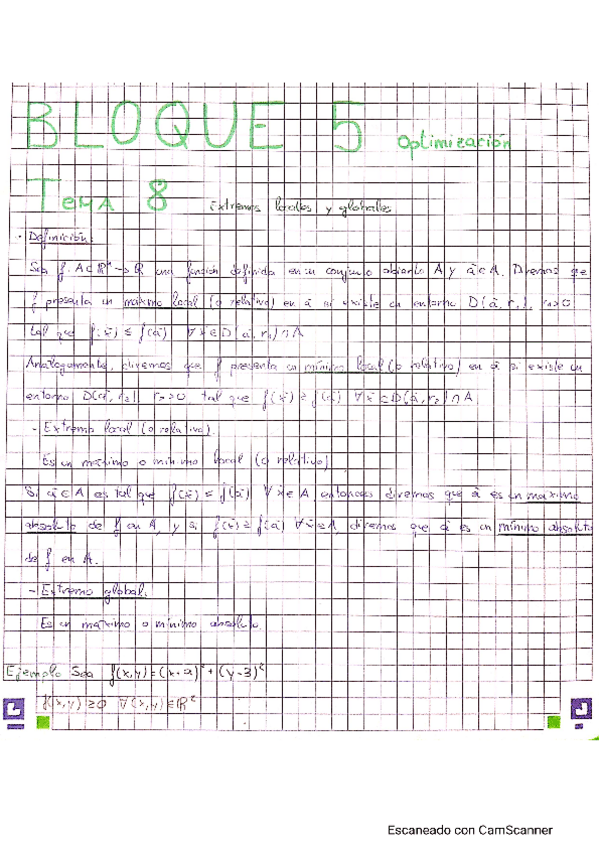 BLOQUE 5 Optimización
Tema 8 Extremos locales y globales
· Definición:
Sea f: A⊂ℝⁿ→ℝ una función definida en un conjunto abierto A y ā∈A. Diremos que
f presenta un máximo local (o relativo) en ā si existe un entorno D(ā, r₁), r₁>0
tal que f(x̄) ≤ f(ā) ∀x̄∈D(ā, r₁)∩A
Analogamente, diremos que f presenta un mínimo local (o relativo) en ā si existe un
entorno D(ā, r₂), r₂>0 tal que f(x̄) ≥ f(ā) ∀x̄∈D(ā, r₂)∩A.
- Extremo local (o relativo).
Es un máximo o mínimo local (o relativo)
Si ā∈A es tal que f(x̄) ≤ f(ā) ∀x̄∈A entonces diremos que ā es un maximo
absoluto de f en A, y si f(x̄) ≥ f(ā) ∀x̄∈A, diremos que ā es un mínimo absoluto
de f en A.
- Extremo global.
Es un máximo o mínimo absoluto.
Ejemplo Sea f(x,y) = (x-2)² + (y-3)²
f(x,y) ≥0 ∀(x,y)∈ℝ²
Escaneado con CamScanner